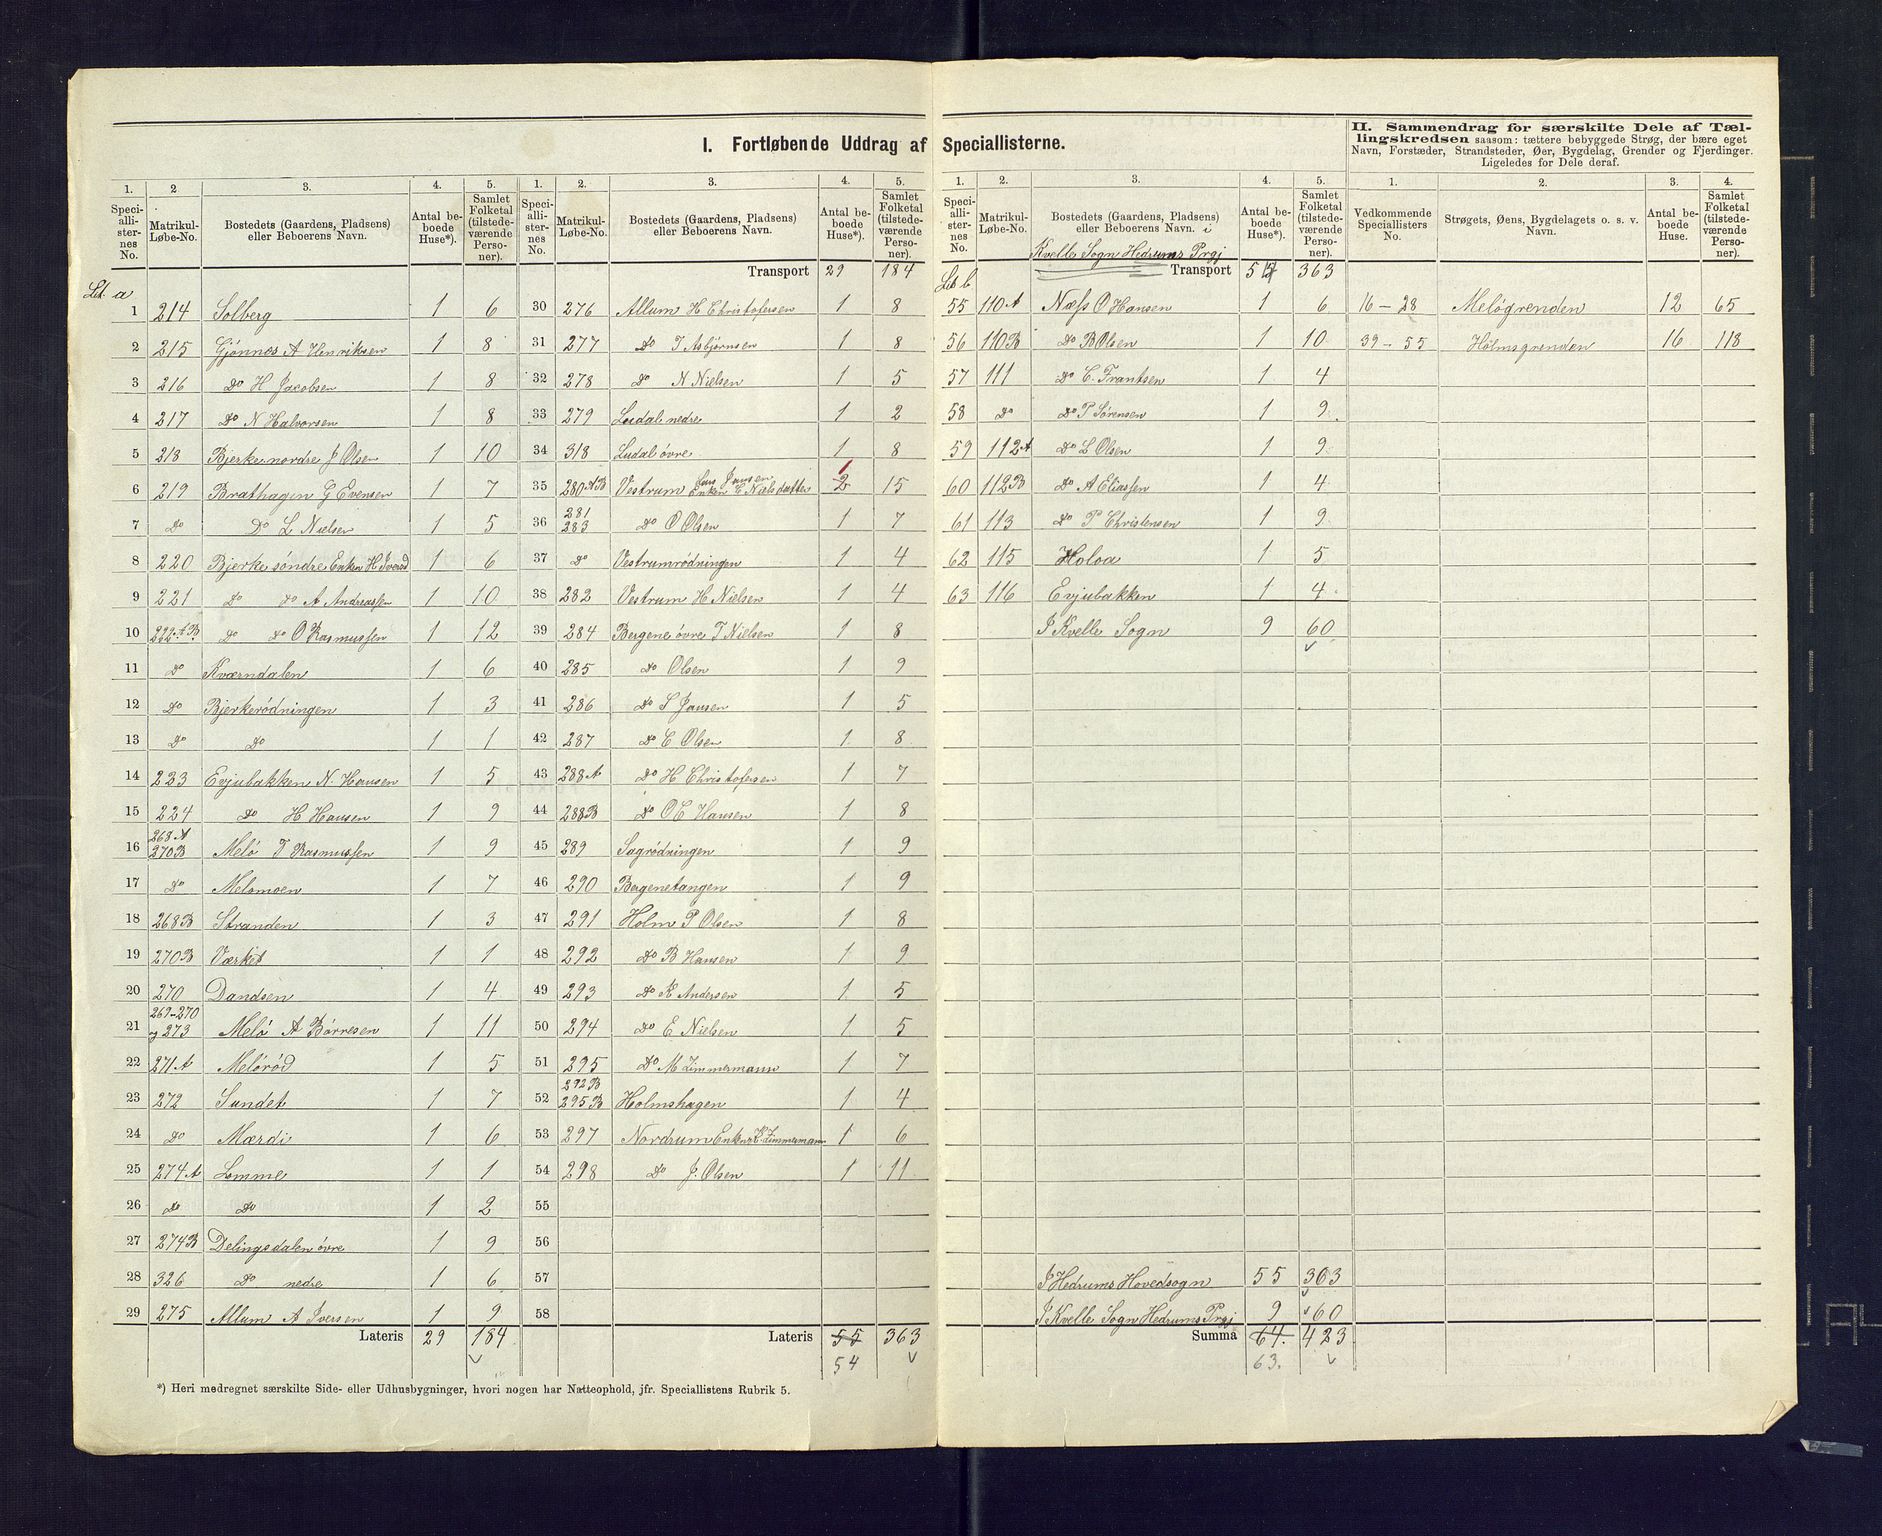 I. Fortløbende Uddrag af Speciallisterne.
II. Sammendrag for særskilte Dele af Tællingskredsen saasom: tættere bebyggede Strøg, der bære eget
Navn, Forstæder, Strandsteder, Øer, Bygdelag, Grender og Fjerdinger.
Ligeledes for Dele deraf.
1. 2 3. 4. 5.
Speciallisternes No. Matrikul-Løbe-No. Bostedets (Gaardens, Pladsens) eller Beboerens Navn. Antal beboede Huse*). Samlet Folketal (tilstedeværende Personer).
Lit. a
1 214 Solberg 1 6
2 215 Gjønnes A Henriksen 1 8
3 216 Do H Jacobsen 1 8
4 217 Do N Halvorsen 1 8
5 218 Bjerke nordre J Olsen 1 10
6 219 Brathagen G Evensen 1 7
7 Do Do L Nielsen 1 5
8 220 Bjerke søndre Enken H Iversd 1 6
9 221 Do Do A Andreassen 1 10
10 222 A B Do Do O Rasmussen 1 12
11 Do Kværndalen 1 6
12 Do Bjerkerødningen 1 3
13 Do Do 1 1
14 223 Evjubakken N. Hansen 1 5
15 224 Do H Hansen 1 9
16 268 A 270 B Melø T Rasmussen 1 9
17 Do Melomoen 1 7
18 268 B Stranden 1 3
19 270 B Værket 1 1
20 270 Dandsen 1 4
21 269-270 og 273 Melø A Børresen 1 11
22 271 A Melørød 1 5
23 272 Sundet 1 7
24 Do Mærdi 1 6
25 274 A Lomme 1 1
26 Do Do 1 2
27 274 B Delingsdalen øvre 1 9
28 326 Do nedre 1 6
29 275 Allum A Iversen 1 9
Lateris 29 184
*) Heri medregnet særskilte Side- eller Udhusbygninger, hvori nogen har Natteophold, jfr. Speciallistens Rubrik 5.
1. 2. 3. 4. 5.
Speciallisternes No. Matrikul-Løbe-No. Bostedets (Gaardens, Pladsens) eller Beboerens Navn. Antal beboede Huse*). Samlet Folketal (tilstedeværende Personer).
Transport 29 184
30 276 Allum H Christofersen 1 8
31 277 Do T Asbjørnsen 1 8
32 278 Do N Nielsen 1 5
33 279 Ludal nedre 1 2
34 318 Ludal øvre 1 8
35 280 A B Vestrum Lars Jansen Enken C Nielsdatter 2 1 15
36 281 283 Do O Olsen 1 7
37 Do Vestrumrødningen 1 4
38 282 Vestrum H Nielsen 1 4
39 284 Bergene øvre T Nielsen 1 8
40 285 Do Olsen 1 9
41 286 Do S Jansen 1 5
42 287 Do C Olsen 1 8
43 288 A Do H Christofersen 1 7
44 288 B Do O C Hansen 1 8
45 289 Sagrødningen 1 9
46 290 Bergenetangen 1 9
47 291 Holm P Olsen 1 8
48 292 Do B Hansen 1 9
49 293 Do K Andersen 1 5
50 294 Do E Nielsen 1 5
51 295 Do M Zimmermann 1 7
52 292 B 295 B Holmshagen 1 4
53 297 Nordrum Enken K. Zimmermann 1 6
54 298 Do J. Olsen 1 11
55
56
57
58
Lateris 55 363
54
1. 2. 3. 4. 5.
Speciallisternes No. Matrikul-Løbe-No. Bostedets (Gaardens, Pladsens) eller Beboerens Navn. i Antal beboede Huse*). Samlet Folketal (tilstedeværende Personer).
Kvelle Sogn Hedrums Prgj
Lit b Transport 54 363
55 110 A Næss O Hansen 1 6
56 110 B Do B Olsen 1 10
57 111 Do C. Frantsen 1 4
58 Do Do P Sørensen 1 9
59 112 A Do L Olsen 1 9
60 112 B Do A Eliassen 1 4
61 113 Do P Christensen 1 9
62 115 Holoa 1 5
63 116 Evjubakken 1 4
I Kvelle Sogn 9 60
I Hedrums Hovedsogn 55 363
I Kvelle Sogn Hedrums Prgj 9 60
Summa 64 423
63.
1. 2. 3. 4.
Vedkommende Speciallisters No. Strøgets, Øens, Bygdelagets o. s. v. Navn. Antal beboede Huse. Samlet Folketal (tilstedeværende Personer).
16-28 Meløgrenden 12 65
39-55 Holmsgrenden 16 118